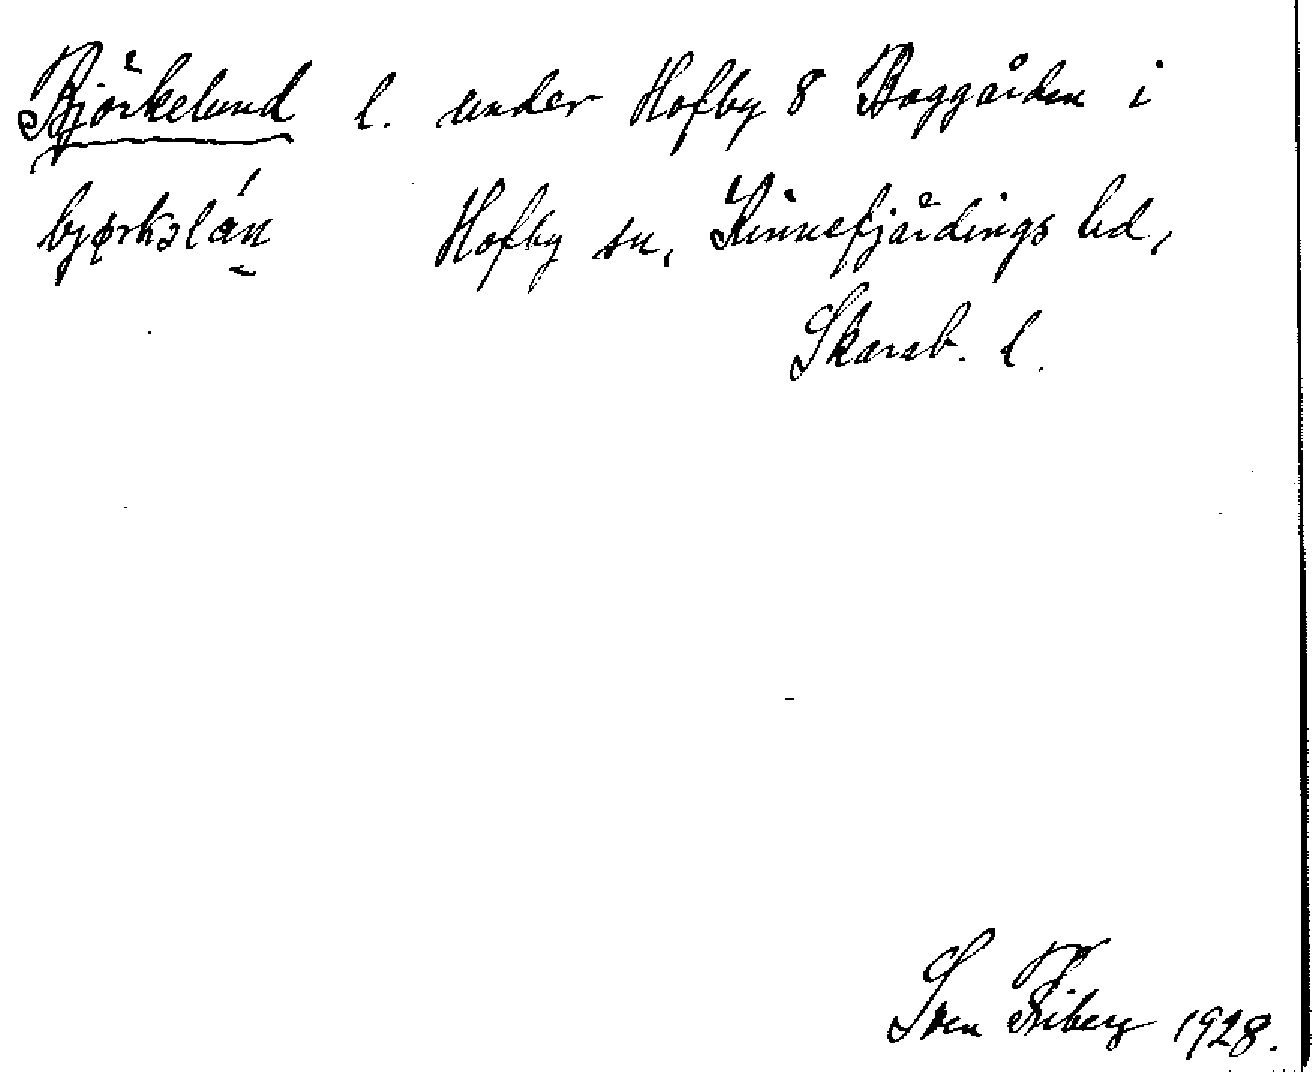 Björkelund l. under Hofby 8 Baggården i
bjørkəlán Hofby sn, Kinnefjärdings hd,
Skarab. l.
Sven Friberg 1928.